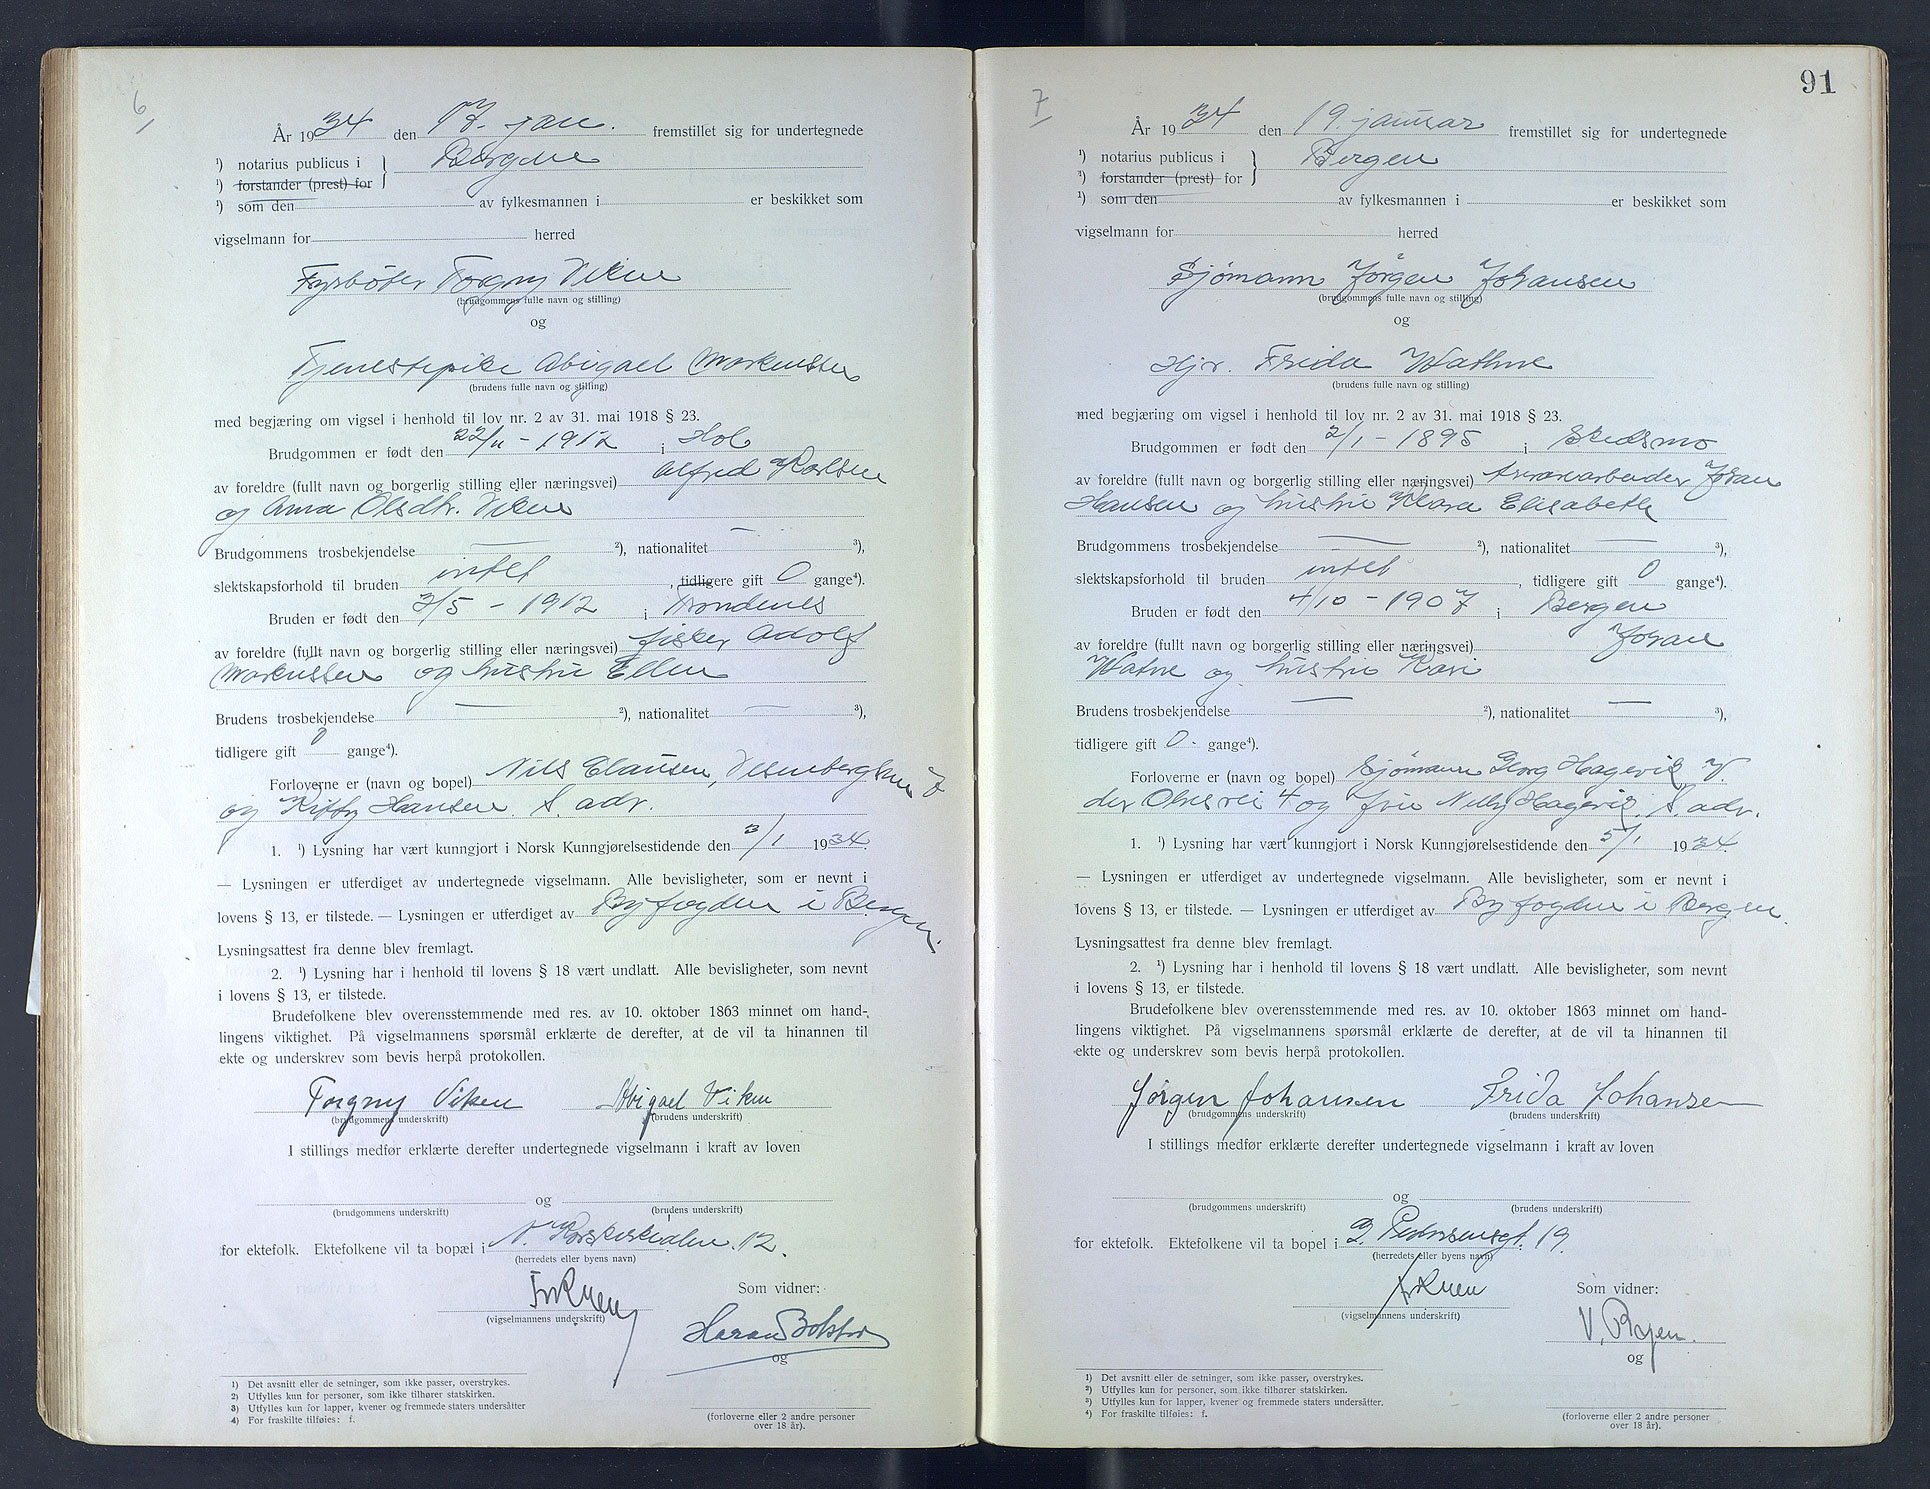 6
År 1934 den 17. jan. fremstillet sig for undertegnede
¹) notarius publicus i Bergen
¹) forstander (prest) for
¹) som den av fylkesmannen i er beskikket som
vigselmann for herred
Fyrbøter Torgny Viken
(brudgommens fulle navn og stilling)
og
Tjenestepike Abigael Markussen
(brudens fulle navn og stilling)
med begjæring om vigsel i henhold til lov nr. 2 av 31. mai 1918 § 23.
Brudgommen er født den 22/11 - 1912 i Hol
av foreldre (fullt navn og borgerlig stilling eller næringsvei) Alfred Karlsen
og Anna Olsdtr. Viken
Brudgommens trosbekjendelse — ²), nationalitet — ³),
slektskapsforhold til bruden intet, tidligere gift 0 gange⁴).
Bruden er født den 3/5 - 1912 i Trondenes
av foreldre (fullt navn og borgerlig stilling eller næringsvei) fisker Adolf
Markussen og hustru Ellen
Brudens trosbekjendelse — ²), nationalitet — ³),
tidligere gift 0 gange⁴).
Forloverne er (navn og bopel) Nils Clausen,
og Hansen. S. adr.
1. ¹) Lysning har vært kunngjort i Norsk Kunngjørelsestidende den 3/1 1934.
— Lysningen er utferdiget av undertegnede vigselmann. Alle bevisligheter, som er nevnt i
lovens § 13, er tilstede. — Lysningen er utferdiget av Byfogden i Bergen.
Lysningsattest fra denne blev fremlagt.
2. ¹) Lysning har i henhold til lovens § 18 vært undlatt. Alle bevisligheter, som nevnt
i lovens § 13, er tilstede.
Brudefolkene blev overensstemmende med res. av 10. oktober 1863 minnet om hand-
lingens viktighet. På vigselmannens spørsmål erklærte de derefter, at de vil ta hinannen til
ekte og underskrev som bevis herpå protokollen.
Torgny Viken Abigael Viken
(brudgommens underskrift) (brudens underskrift)
I stillings medfør erklærte derefter undertegnede vigselmann i kraft av loven
og
(brudgommens underskrift) (brudens underskrift)
for ektefolk. Ektefolkene vil ta bopæl i N. Korskirkealm. 12.
(herredets eller byens navn)
Som vidner:
(vigselmannens underskrift)
og
1) Det avsnitt eller de setninger, som ikke passer, overstrykes.
2) Utfylles kun for personer, som ikke tilhører statskirken.
3) Utfylles kun for lapper, kvener og fremmede staters undersåtter
4) For fraskilte tilføies: f.
(forloverne eller 2 andre personer
over 18 år).
91
7
År 1934 den 19. januar fremstillet sig for undertegnede
¹) notarius publicus i Bergen
¹) forstander (prest) for
¹) som den av fylkesmannen i er beskikket som
vigselmann for herred
Sjømann Jørgen Johansen
(brudgommens fulle navn og stilling)
og
Hjv. Frida Wathne
(brudens fulle navn og stilling)
med begjæring om vigsel i henhold til lov nr. 2 av 31. mai 1918 § 23.
Brudgommen er født den 2/1 - 1895 i Skedsmo
av foreldre (fullt navn og borgerlig stilling eller næringsvei) Johan
Hansen og hustru Klara Elisabeth
Brudgommens trosbekjendelse — ²), nationalitet — ³),
slektskapsforhold til bruden intet, tidligere gift 0 gange⁴).
Bruden er født den 4/10 - 1907 i Bergen
av foreldre (fullt navn og borgerlig stilling eller næringsvei) Johan
Watne og hustru Kari
Brudens trosbekjendelse — ²), nationalitet — ³),
tidligere gift 0 - gange⁴).
Forloverne er (navn og bopel) Sjømann Georg Hagevik V.
der Ohesvei 4 og fru Nelly Hagevik. S. adr.
1. ¹) Lysning har vært kunngjort i Norsk Kunngjørelsestidende den 5/1 1934.
— Lysningen er utferdiget av undertegnede vigselmann. Alle bevisligheter, som er nevnt i
lovens § 13, er tilstede. — Lysningen er utferdiget av Byfogden i Bergen.
Lysningsattest fra denne blev fremlagt.
2. ¹) Lysning har i henhold til lovens § 18 vært undlatt. Alle bevisligheter, som nevnt
i lovens § 13, er tilstede.
Brudefolkene blev overensstemmende med res. av 10. oktober 1863 minnet om hand-
lingens viktighet. På vigselmannens spørsmål erklærte de derefter, at de vil ta hinannen til
ekte og underskrev som bevis herpå protokollen.
Jørgen Johansen Frida Johansen
(brudgommens underskrift) (brudens underskrift)
I stillings medfør erklærte derefter undertegnede vigselmann i kraft av loven
og
(brudgommens underskrift) (brudens underskrift)
for ektefolk. Ektefolkene vil ta bopel i Pedersensgt. 19.
(herredets eller byens navn)
Som vidner:
(vigselmannens underskrift)
og
1) Det avsnitt eller de setninger, som ikke passer, overstrykes.
2) Utfylles kun for personer, som ikke tilhører statskirken.
3) Utfylles kun for lapper, kvener og fremmede staters undersåtter.
4) For fraskilte tilføies: f.
(forloverne eller 2 andre personer
over 18 år).